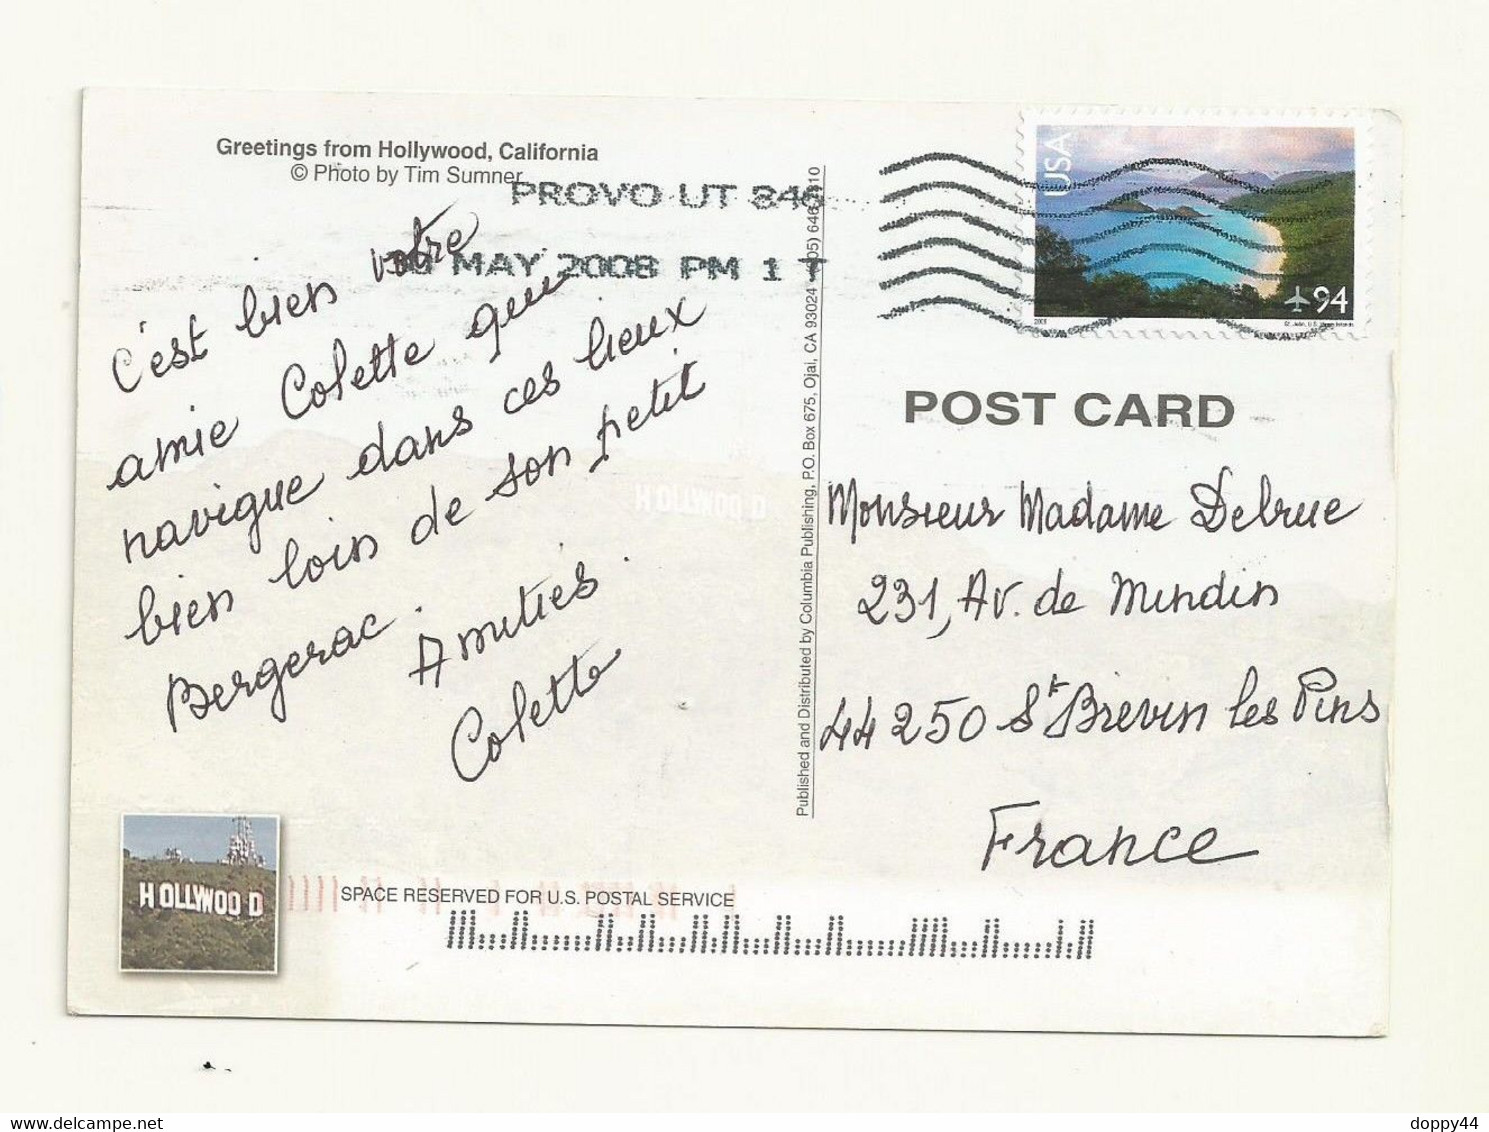 Greetings from Hollywood, California
© Photo by Tim Sumner
PROVO UT 846
MAY 2008 PM 1 T
c'est bien votre
amie Colette qui
navigue dans ces lieux
bien loin de son petit
Bergerac.
Amitiés.
Colette
Published and Distributed by Columbia Publishing, P.O. Box 675, Ojai, CA 93024
USA
94
POST CARD
Monsieur Madame Delrue
231, Av. de Mindin
44250 St Brevin les Pins
France
HOLLYWOOD
SPACE RESERVED FOR U.S. POSTAL SERVICE
HOLLYWOOD
delcampe.net
doppy44